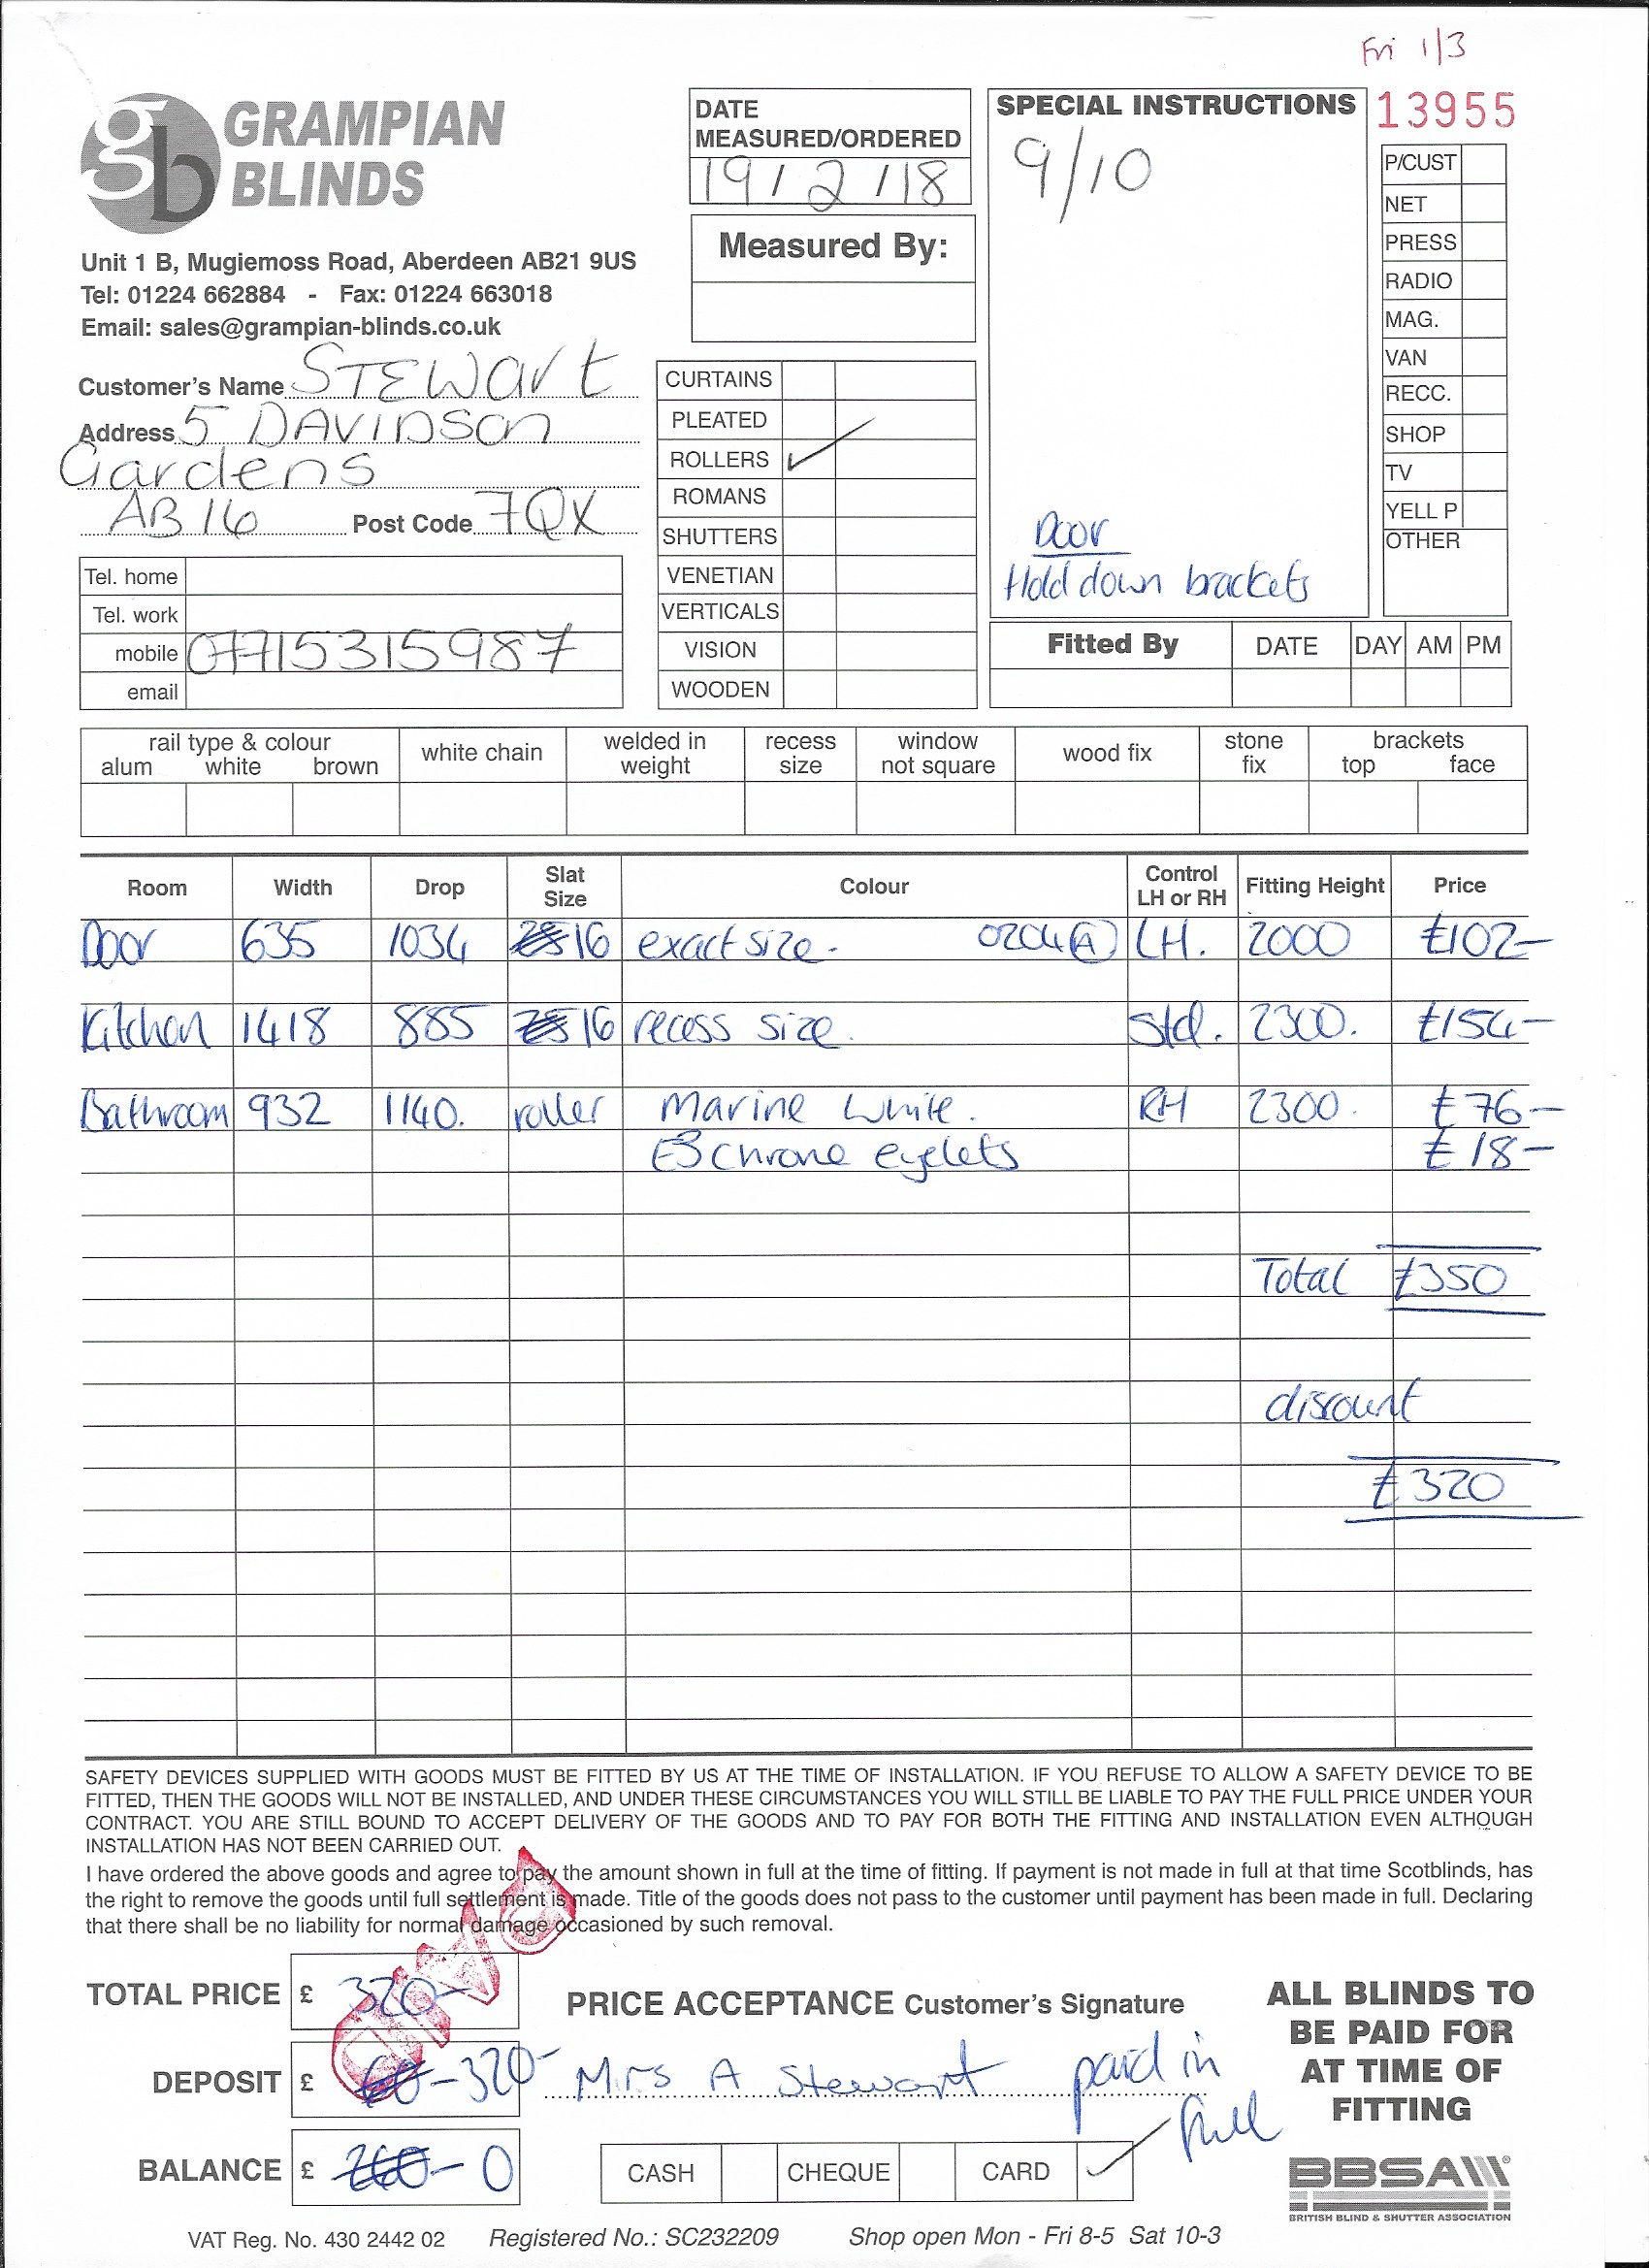 Fri 1/3
gb GRAMPIAN
BLINDS
Unit 1 B, Mugiemoss Road, Aberdeen AB21 9US
Tel: 01224 662884 - Fax: 01224 663018
Email: sales@grampian-blinds.co.uk
Customer's Name STEWart
Address 5 DAVIDSon
Gardens
AB16 Post Code 7QX
Tel. home
Tel. work
mobile 07715315987
email
DATE
MEASURED/ORDERED
19/2/18
Measured By:
CURTAINS
PLEATED
ROLLERS ✓
ROMANS
SHUTTERS
VENETIAN
VERTICALS
VISION
WOODEN
SPECIAL INSTRUCTIONS
9/10
Door
Hold down brackets
13955
P/CUST
NET
PRESS
RADIO
MAG.
VAN
RECC.
SHOP
TV
YELL P
OTHER
Fitted By DATE DAY AM PM
rail type & colour white chain welded in weight recess size window not square wood fix stone fix brackets
alum white brown top face
Room Width Drop Slat Size Colour Control LH or RH Fitting Height Price
Door 635 1034 16 exact size. 0204 A LH. 2000 £102-
Kitchen 1418 885 16 recess size. Std. 2300. £154-
Bathroom 932 1140. roller Marine White. RH 2300. £76-
E3 chrome eyelets £18-
Total £350
discount
£320
SAFETY DEVICES SUPPLIED WITH GOODS MUST BE FITTED BY US AT THE TIME OF INSTALLATION. IF YOU REFUSE TO ALLOW A SAFETY DEVICE TO BE
FITTED, THEN THE GOODS WILL NOT BE INSTALLED, AND UNDER THESE CIRCUMSTANCES YOU WILL STILL BE LIABLE TO PAY THE FULL PRICE UNDER YOUR
CONTRACT. YOU ARE STILL BOUND TO ACCEPT DELIVERY OF THE GOODS AND TO PAY FOR BOTH THE FITTING AND INSTALLATION EVEN ALTHOUGH
INSTALLATION HAS NOT BEEN CARRIED OUT.
I have ordered the above goods and agree to pay the amount shown in full at the time of fitting. If payment is not made in full at that time Scotblinds, has
the right to remove the goods until full settlement is made. Title of the goods does not pass to the customer until payment has been made in full. Declaring
that there shall be no liability for normal damage occasioned by such removal.
PAID
TOTAL PRICE £ 320-
DEPOSIT £ 60-320-
BALANCE £ 260-0
PRICE ACCEPTANCE Customer's Signature
Mrs A Stewart paid in
full
CASH CHEQUE CARD ✓
ALL BLINDS TO
BE PAID FOR
AT TIME OF
FITTING
BBSA
BRITISH BLIND & SHUTTER ASSOCIATION
VAT Reg. No. 430 2442 02 Registered No.: SC232209 Shop open Mon - Fri 8-5 Sat 10-3